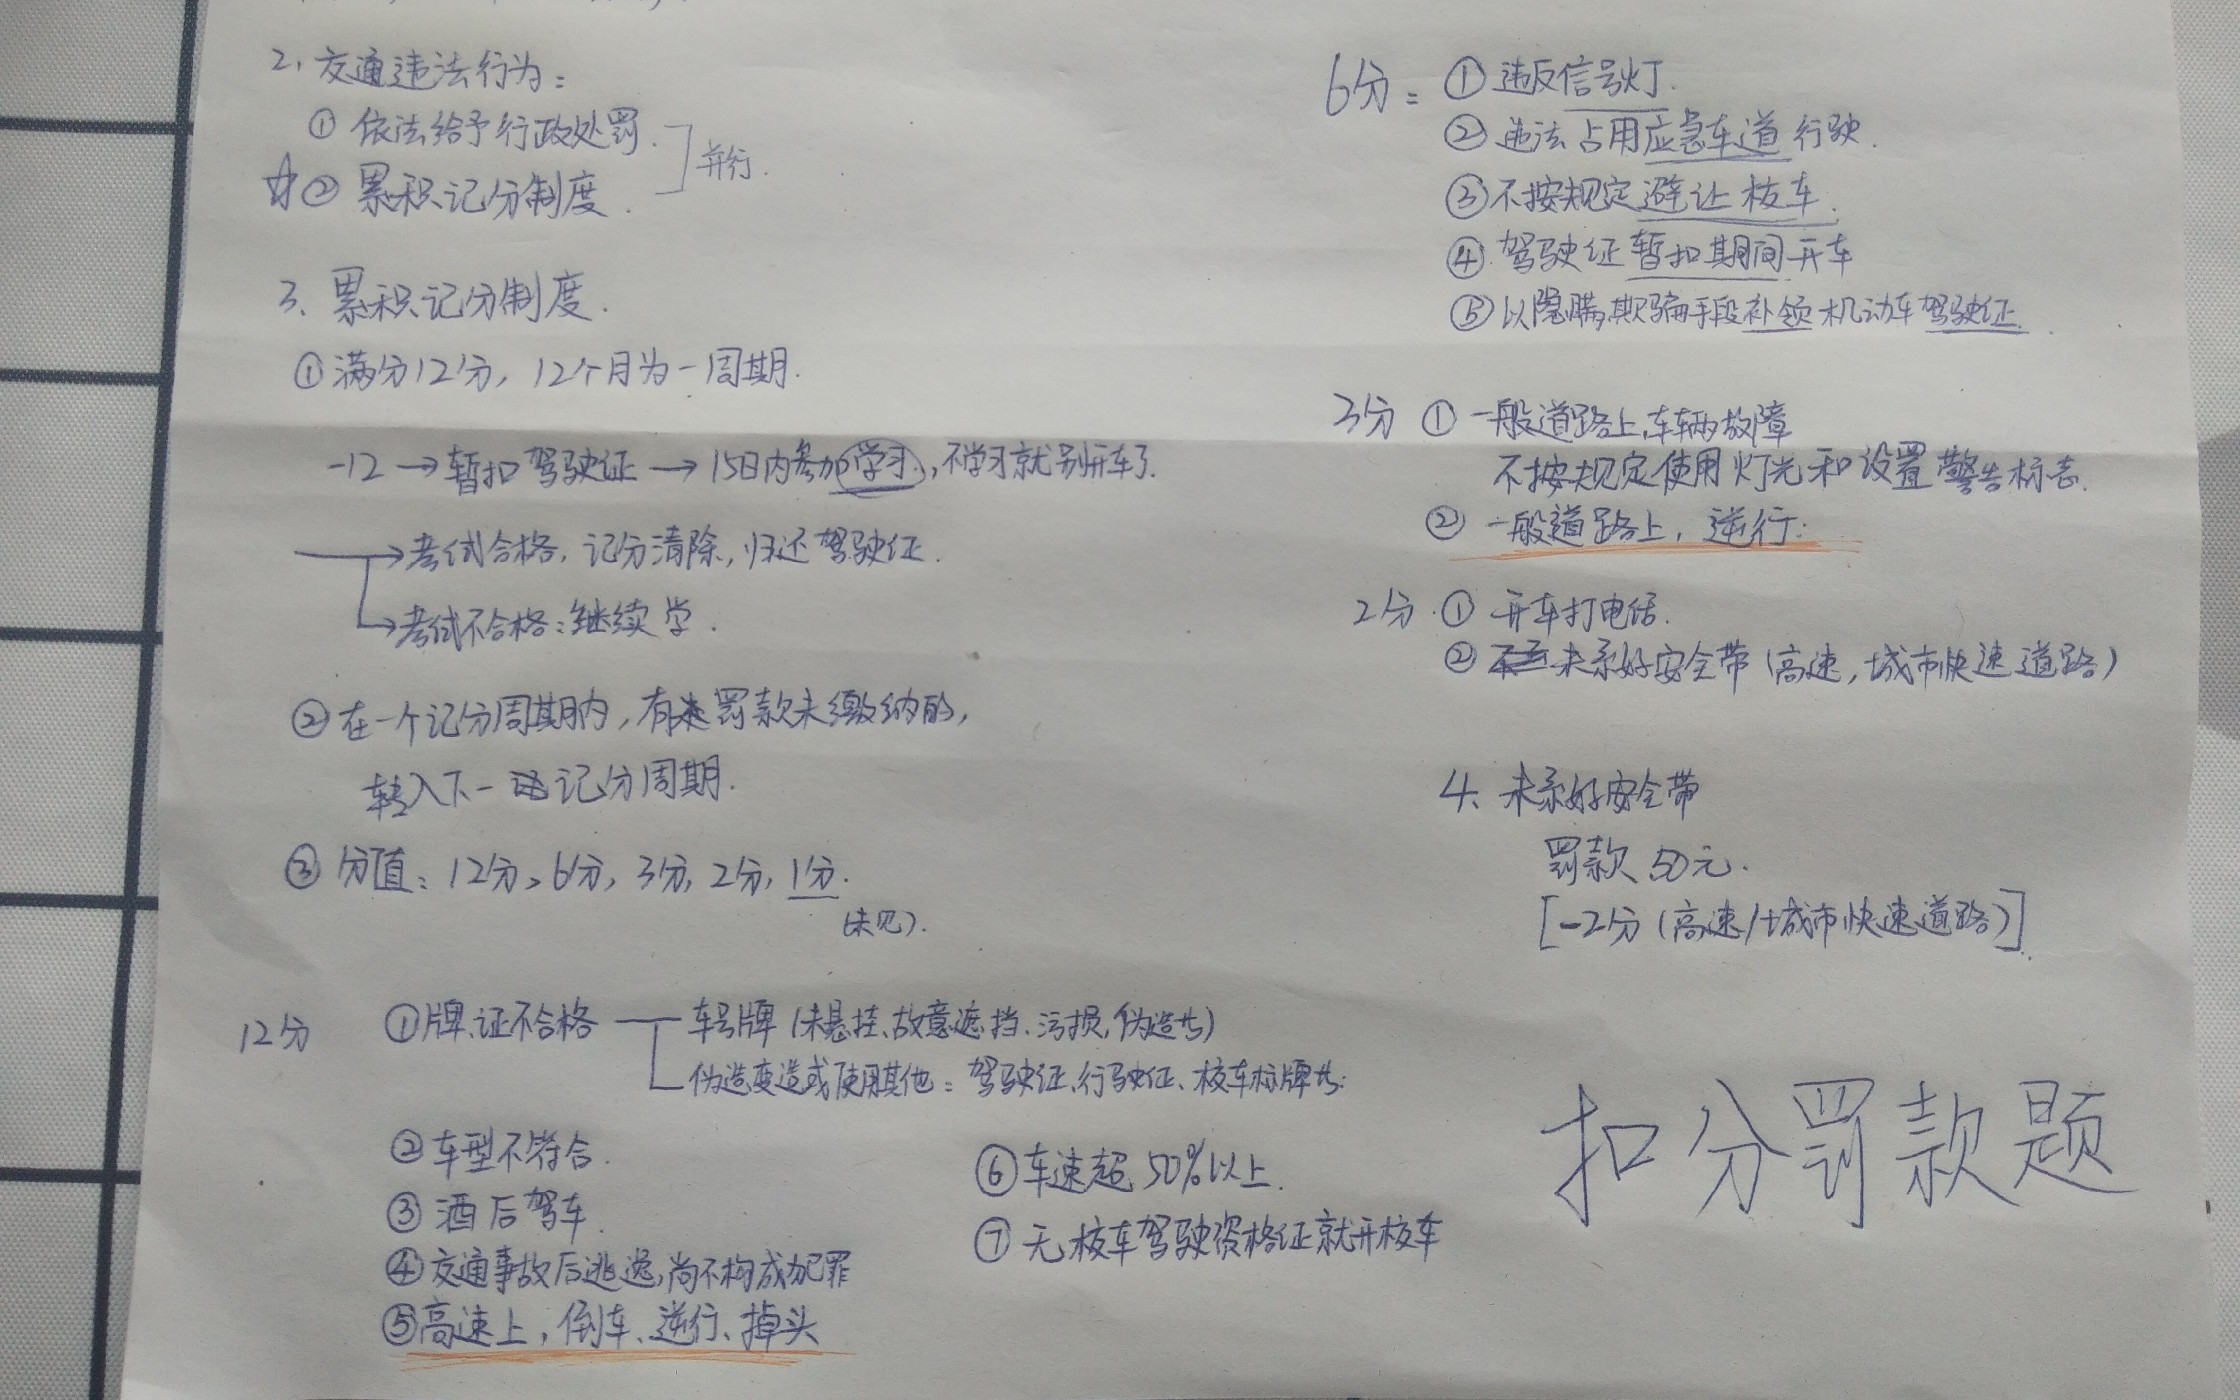 2、交通违法行为:
① 依法给予行政处罚.
☆② 累积记分制度.
并行.
3、累积记分制度.
①满分12分, 12个月为一周期.
-12→暂扣驾驶证→15日内参加学习,不学习就别开车了.
→考试合格,记分清除,归还驾驶证.
→考试不合格:继续学.
②在一个记分周期内,有罚款未缴纳的,
转入下一记分周期.
③ 分值:12分、6分,3分,2分,1分.
(未见).
12分 ①牌、证不合格
车号牌(未悬挂、故意遮挡、污损,伪造等)
伪造变造或使用其他:驾驶证、行驶证、校车标牌等.
②车型不符合.
③酒后驾车.
④交通事故后逃逸,尚不构成犯罪
⑤高速上,倒车、逆行、掉头
⑥车速超50%以上.
⑦无校车驾驶资格证就开校车
6分: ①违反信号灯.
②违法占用应急车道行驶.
③不按规定避让校车.
④驾驶证暂扣期间开车
⑤以隐瞒,欺骗手段补领机动车驾驶证.
3分 ①一般道路上,车辆故障
不按规定使用灯光和设置警告标志.
② 一般道路上,逆行.
2分.① 开车打电话.
②未系好安全带(高速,城市快速道路)
4、未系好安全带
罚款50元.
[-2分(高速/城市快速道路)].
扣分罚款题